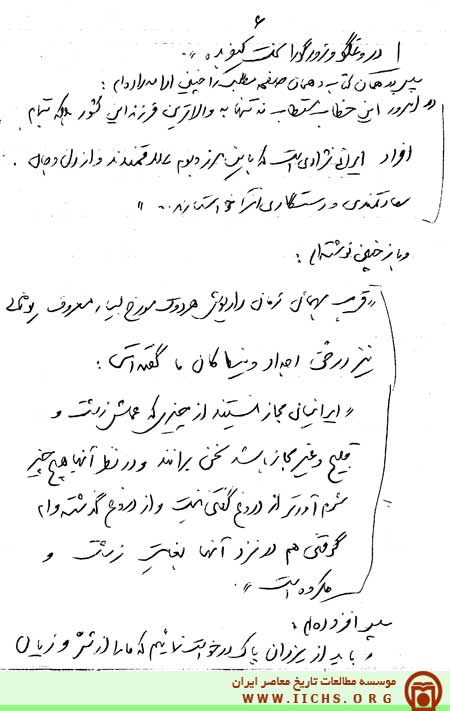 ۶
دروغگو و زورگو را سخت کیفر ده».
سپس در همان کتاب و همان صفحه مطلب را چنین ادامه داده‌ام:
«امروز این خطاب مستطاب نه تنها به والاترین فرزند این کشور بلکه به تمام
افراد ایرانی نژادی است که باین مرز و بوم علاقمندند و از دل و جان
سعادتمندی و رستگاری آنرا خواستارند..»
و باز چنین نوشته‌ام:
«قریب بهمان زمان داریوش هردوت مورخ بسیار معروف یونانی
نیز در حق اجداد و نیاکان ما گفته است:
«ایرانیان مجاز نیستند از چیزی که عملش زشت و
قبیح و غیر مجاز باشد سخن برانند و در نظر آنها هیچ چیز
شرم آورتر از دروغ گفتن نیست و از دروغ گذشته وام
گرفتن هم در نزد آنها بغایت زشت و
مکروه است».
سپس افزوده‌ام:
«باید از یزدان پاک درخواست نمائیم که ما را از شر و زیان
موسسه مطالعات تاریخ معاصر ایران
WWW.IICHS.ORG